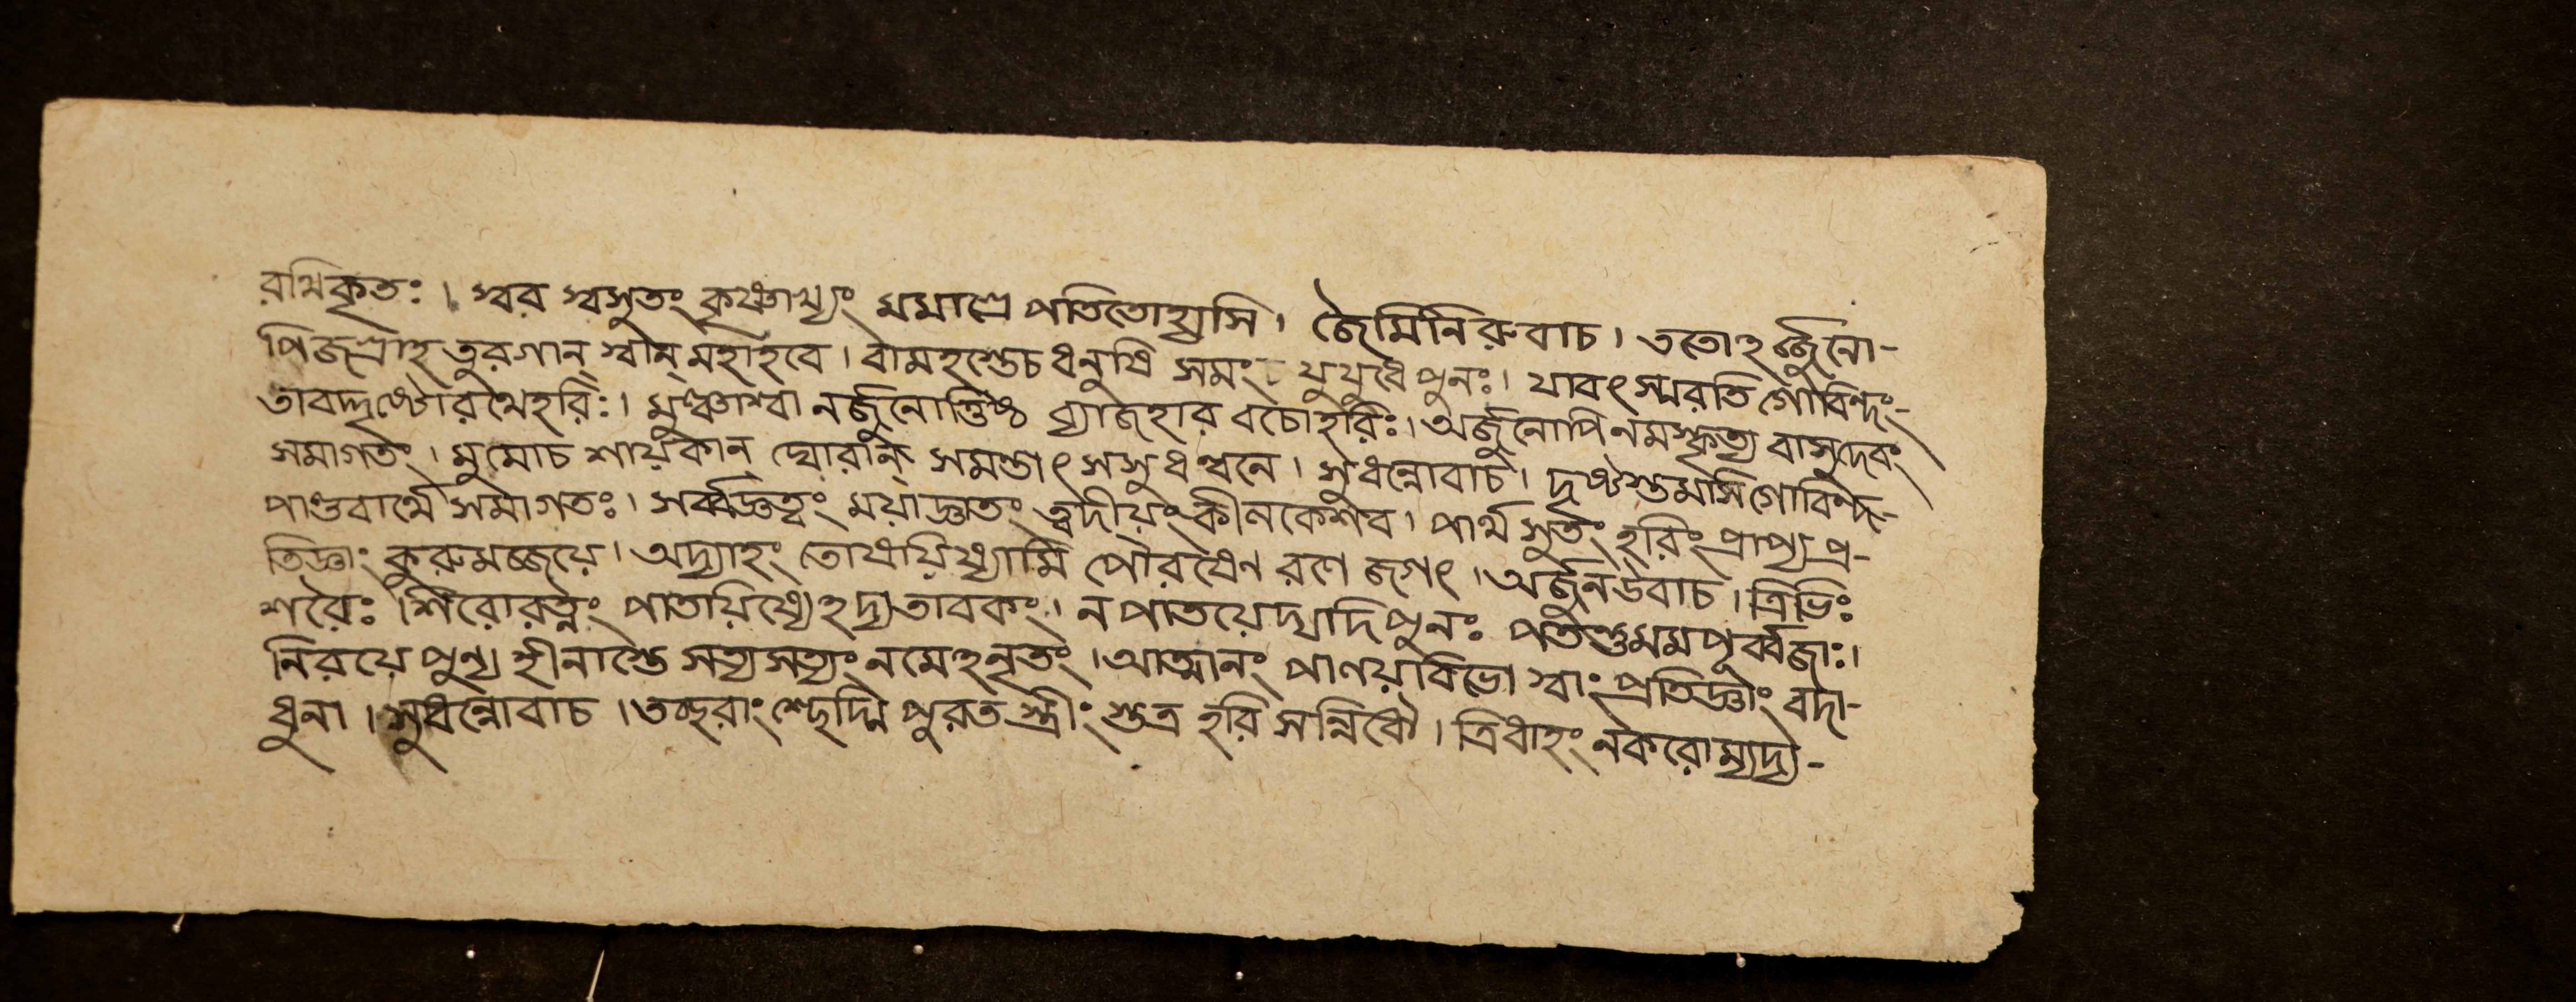 রথিকৃতঃ। স্মর স্বসুতং কৃষ্ণাখ্যং মমাগ্রে পতিতোহ্যসি। জৈমিনিরুবাচ। ততোহর্জ্জুনো-
পিজগ্রাহ তুরগান্ স্বান্ মহাহবে। বামহস্তেচ ধনুষি সমং যুযুধে পুনঃ। যাবৎ স্মরতি গোবিন্দং-
তাবদ্দৃষ্টোরথেহরিঃ। মুঞ্চাশ্বানর্জুনোত্তিষ্ঠ ব্যাজহার বচোহরিঃ। অর্জুনোপি নমস্কৃত্য বাসুদেবং
সমাগতং। মুমোচ শায়কান্ ঘোরান্ সমন্তাৎ সসুধধ্বনে। সুধন্নোবাচ। দৃষ্টস্তমসি গোবিন্দ-
পাণ্ডবার্থে সমাগতঃ। সর্ব্বজ্ঞত্বং ময়াজ্ঞাতং ত্বদীয়ং কীনকেশব। পার্থ সুতং হরিং প্রাপ্য প্র-
তিজ্ঞাং কুরুমজ্জয়ে। অদ্যাহং তোষয়িষ্যামি পৌরষেণ রণে জগৎ। অর্জুনউবাচ। ত্রিভিঃ
শরৈঃ শিরোরত্নং পাতয়িষ্যেহদ্য তাবকং। ন পাতয়েদ্যদিপুনঃ পতন্তুমমপূর্ব্বজাঃ।
নিরয়ে পুণ্য হীনাস্তে সত্যসত্যং নমেহনৃতং। আত্মানং পাণয়াবিভো স্বাং প্রতিজ্ঞাং বদা-
ধুনা। সুধন্নোবাচ। তচ্ছরাংশ্ছেদ্মি পুরতস্ত্রীংস্তত্র হরি সন্নিধৌ। ত্রিধাহং নকরোম্যদ্য-